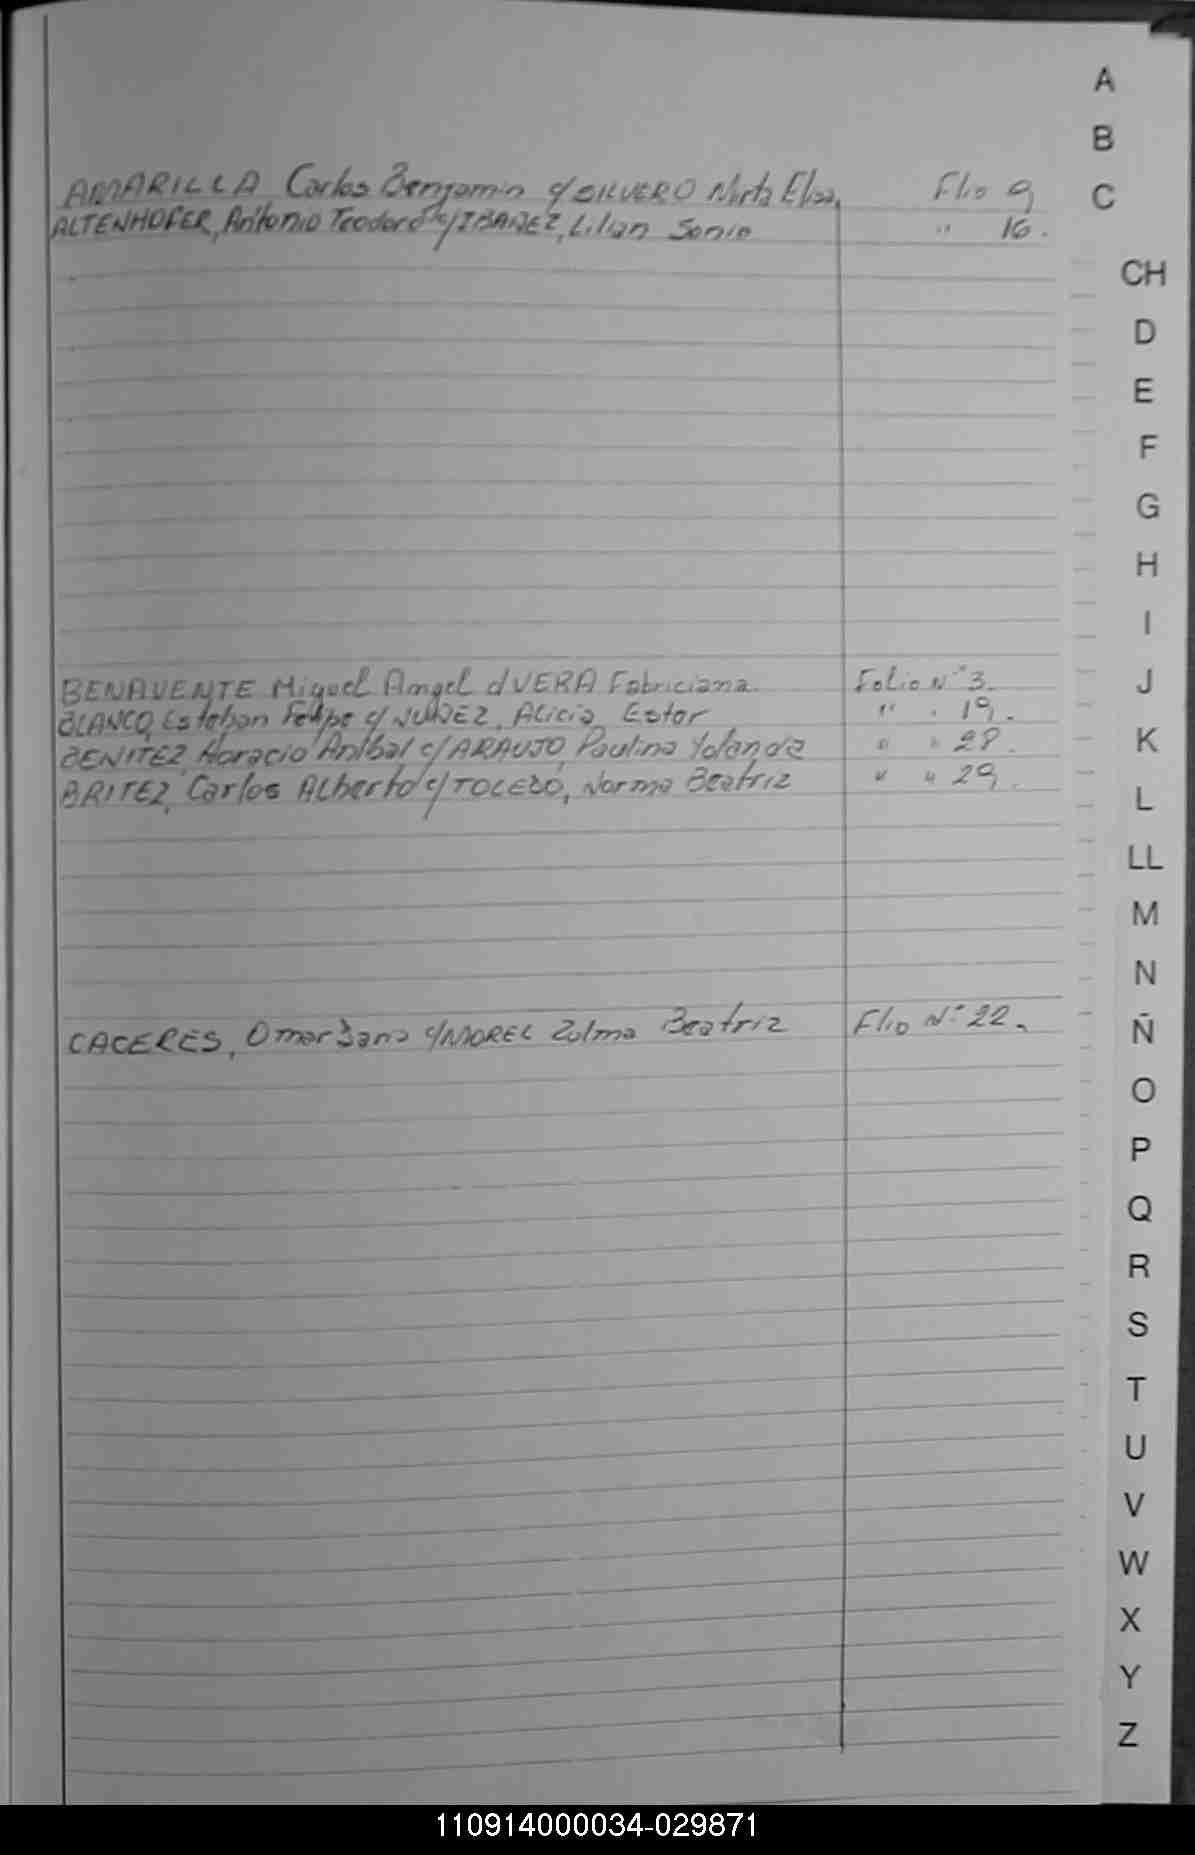 A
B
AMARILLA Carlos Benjamin c/SILVERO Mirta Elisa, Flio 9
C
ALTENHOFER, Antonio Teodoro c/IBAÑEZ, Lilian Sonia " 16.
CH
D
E
F
G
H
I
BENAVENTE Miguel Angel c/VERA Fabriciana Folio N° 3.
J
BLANCO, Esteban Felipe c/ NUÑEZ, Alicia Ester " " 19.
BENITEZ, Horacio Anibal c/ARAUJO, Paulina Yolanda " " 28.
K
BRITEZ, Carlos Alberto c/TOLEDO, Norma Beatriz " " 29.
L
LL
M
N
CACERES, Omar c/MOREL Zulma Beatriz Flio N° 22.
Ñ
O
P
Q
R
S
T
U
V
W
X
Y
Z
110914000034-029871